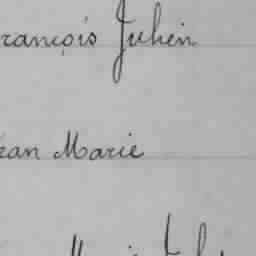 rançois Julien
ean Marie